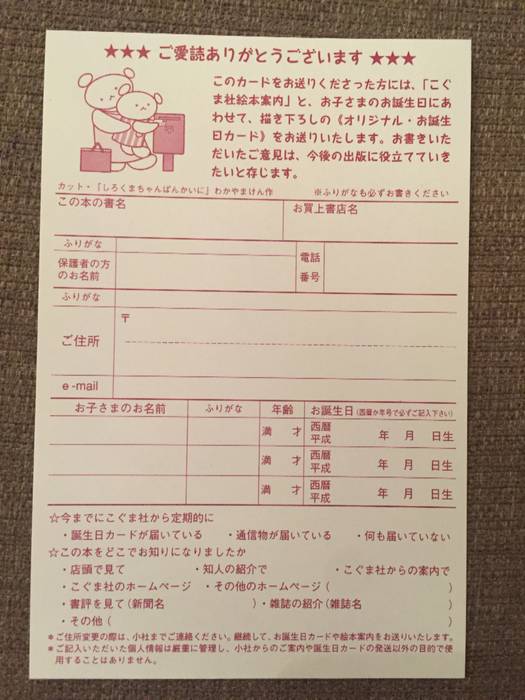 ★★★ ご愛読ありがとうございます ★★★
このカードをお送りくださった方には、「こぐ
ま社絵本案内」と、お子さまのお誕生日にあ
わせて、描き下ろしの《オリジナル・お誕生
日カード》をお送りいたします。お書きいた
だいたご意見は、今後の出版に役立てていき
たいと存じます。
カット・「しろくまちゃんぱんかいに」わかやまけん作 ※ふりがなも必ずお書きください
この本の書名 お買上書店名
ふりがな
保護者の方
のお名前
電話
番号
ふりがな
ご住所 〒
e-mail
お子さまのお名前 ふりがな 年齢 お誕生日(西暦か年号で必ずご記入下さい)
満 才 西暦
平成 年 月 日生
満 才 西暦
平成 年 月 日生
満 才 西暦
平成 年 月 日生
☆今までにこぐま社から定期的に
・誕生日カードが届いている ・通信物が届いている ・何も届いていない
☆この本をどこでお知りになりましたか
・店頭で見て ・知人の紹介で ・こぐま社からの案内で
・こぐま社のホームページ ・その他のホームページ( )
・書評を見て(新聞名 )・雑誌の紹介(雑誌名 )
・その他( )
＊ご住所変更の際は、小社までご連絡ください。継続して、お誕生日カードや絵本案内をお送りいたします。
＊ご記入いただいた個人情報は厳重に管理し、小社からのご案内や誕生日カードの発送以外の目的で使
用することはありません。